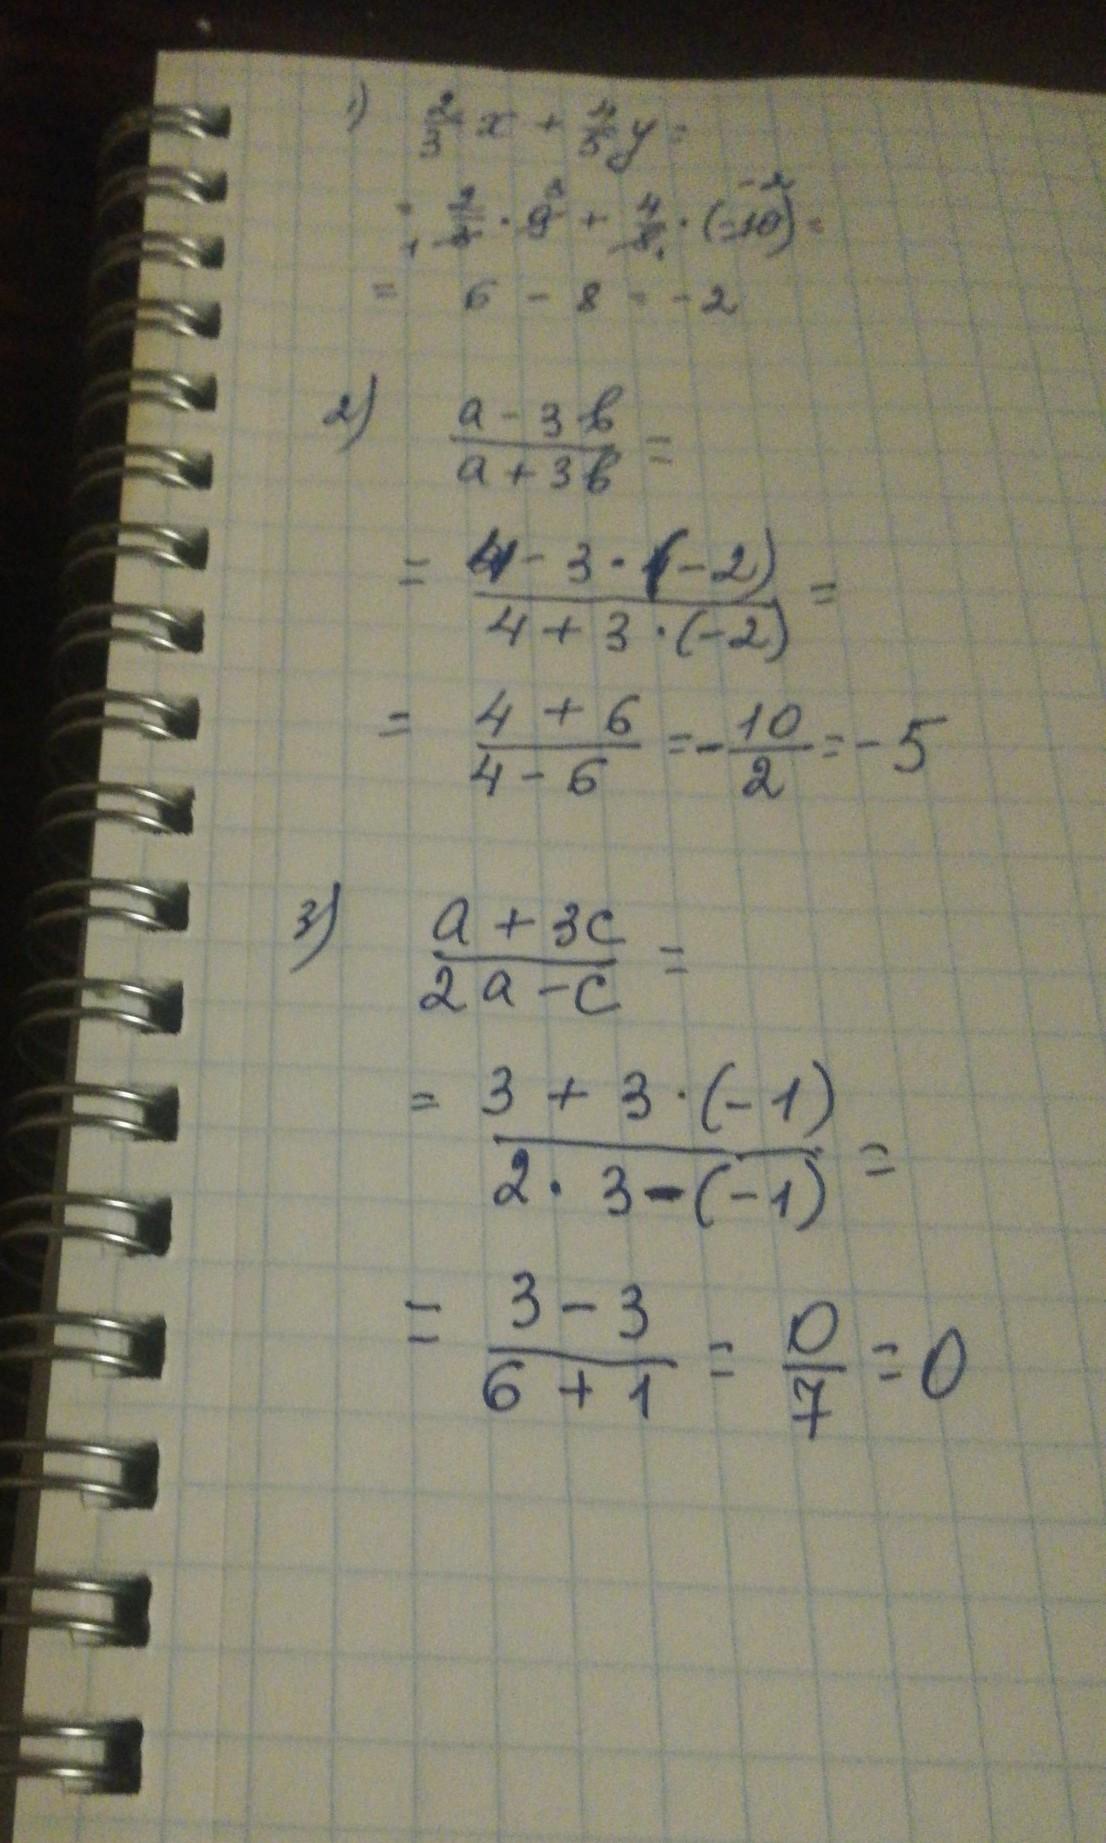 1) 2/3 x + 4/5 y =
= 2/3 · 9 + 4/5 · (-10) =
= 6 - 8 = -2
2) (a - 3b)/(a + 3b) =
= (4 - 3 · (-2))/(4 + 3 · (-2)) =
= (4 + 6)/(4 - 6) = - 10/2 = -5
3) (a + 3c)/(2a - c) =
= (3 + 3 · (-1))/(2 · 3 - (-1)) =
= (3 - 3)/(6 + 1) = 0/7 = 0